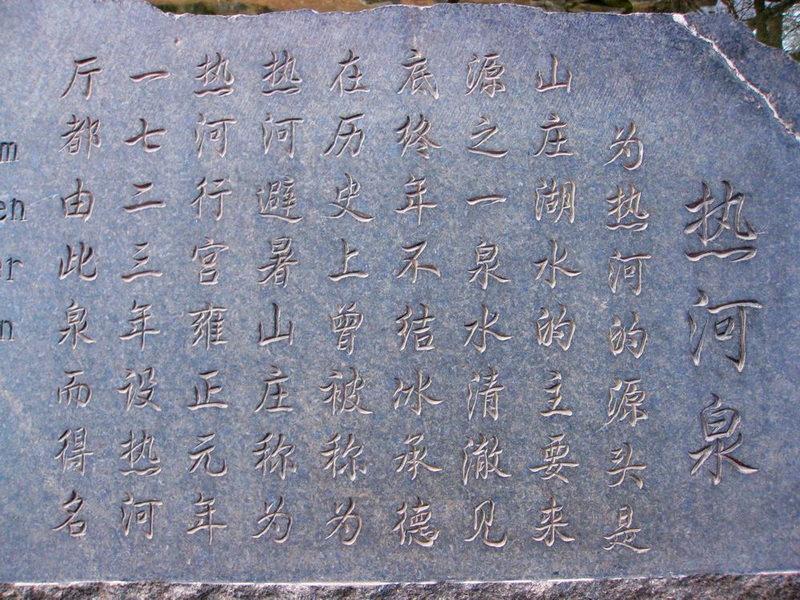 热河泉
为热河的源头是
山庄湖水的主要来
源之一泉水清澈见
底终年不结冰承德
在历史上曾被称为
热河避暑山庄称为
热河行宫雍正元年
一七二三年设热河
厅都由此泉而得名
m
en
er
n